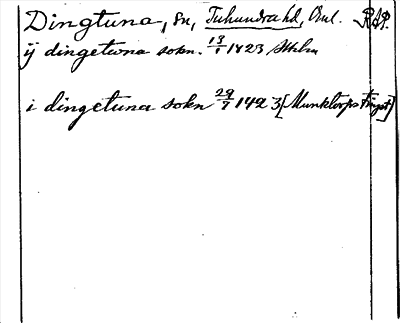 Dingtuna, sn, Tuhundra hd, Vml. RAP.
ij dingetuna sokn. 13/1 1423 Sthlm
i dingetuna sokn 29/7 1423 [Munktorps tingst]